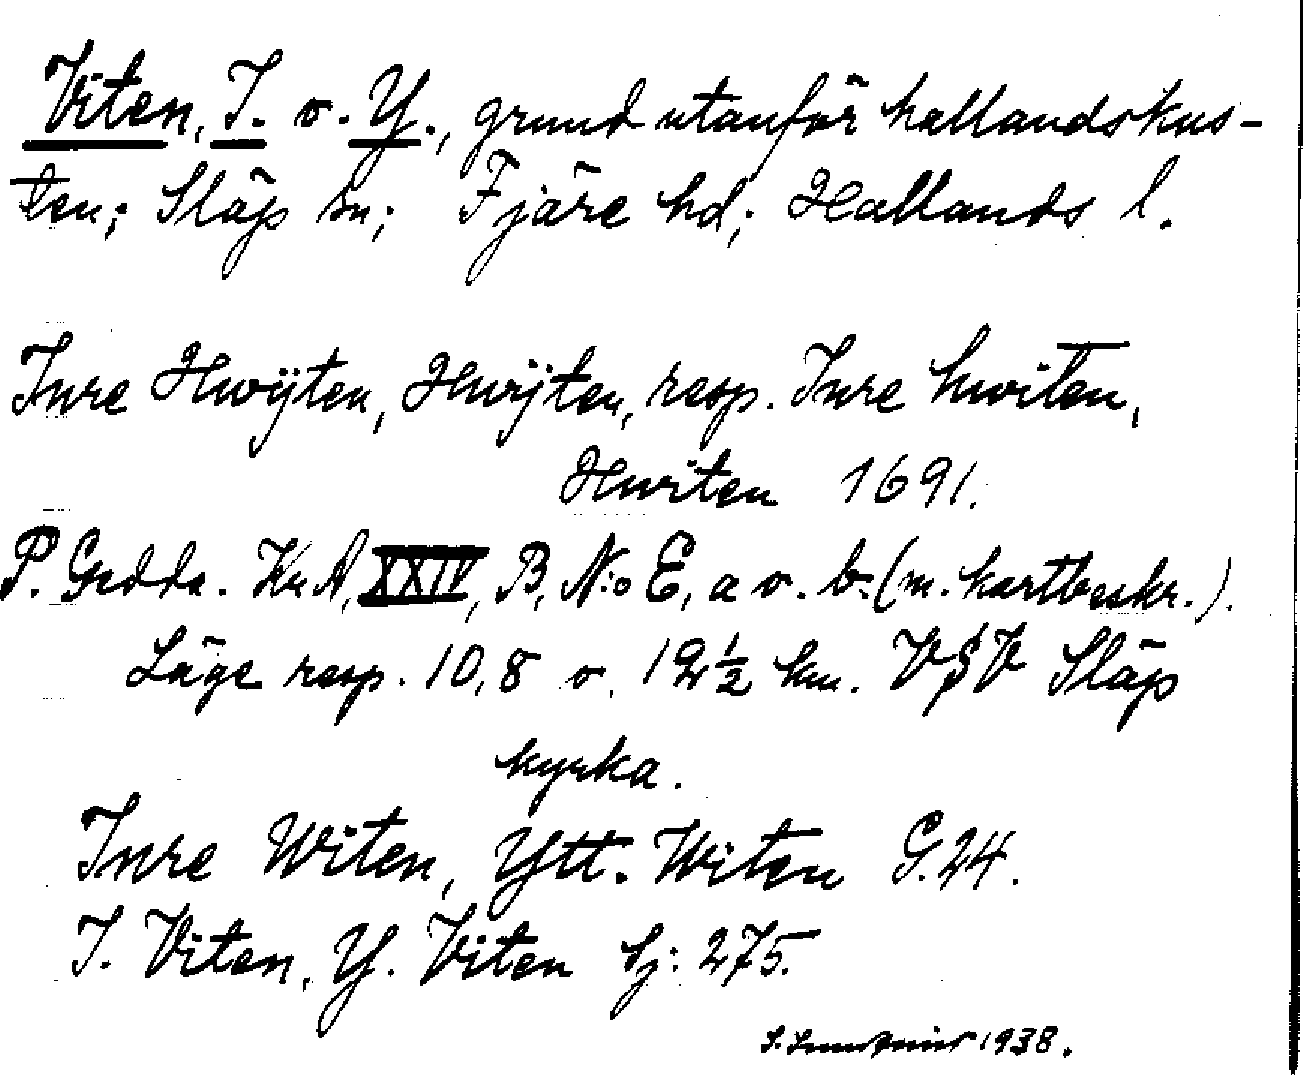 Viten, I. o. Y., grund utanför hallandskus-
ten; Släp sn; Fjäre hd; Hallands l.
Inre Hwÿten, Hwijten, resp. Inre hwiten,
Hwiten 1691.
P. Gedda. Kr.A. XXIV, B, N:o E, a o. b. (m. kartbeskr.).
Läge resp. 10,8 o. 12½ km. VSV Släp
kyrka.
Inre Witen, Ytt. Witen G.24.
I. Viten, Y. Viten Sj: 275.
1938.